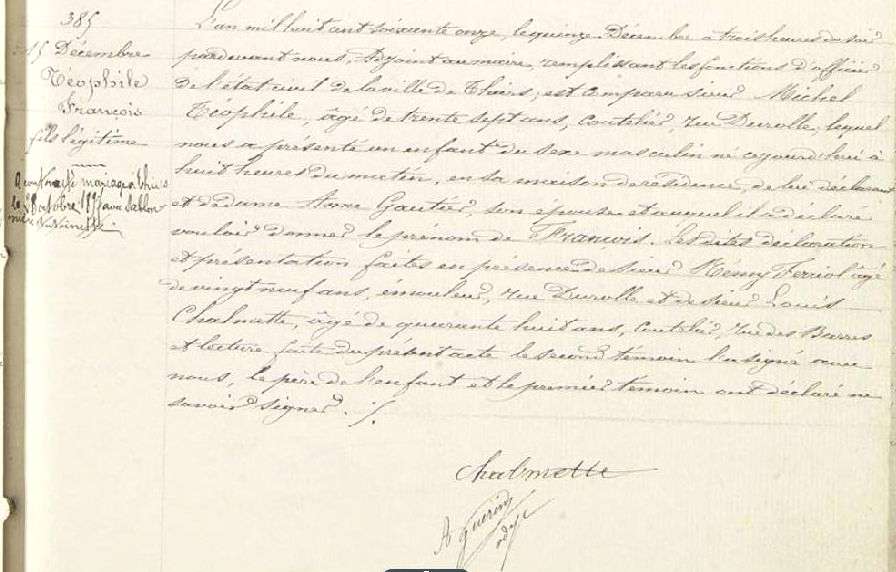 385
15 Décembre
Téophile
François
fils légitime
a contracté mariage à Thiers
le octobre 1897 avec Sablon
L'an mil huit cent soixante onze, le quinze Décembre à trois heures du soir
pardevant nous, Adjoint au maire, remplissant les fonctions d'officier
de l'état civil de la ville de Thiers, est comparu sieur Michel
Téophile, âgé de trente sept ans, coutelier, rue Durolle, lequel
nous a présenté un enfant du sexe masculin né cejourd'hui à
huit heures du matin, en sa maison de résidence, de lui déclarant
et de dame Anne Gautier, son épouse et auquel il a déclaré
vouloir donner le prénom de François. Lesdites déclaration
et présentation faites en présence de sieur Rémy Ferriol âgé
de vingt neuf ans, émouleur, rue Durolle et de sieur Louis
Chalmette, âgé de quarante huit ans, coutelier, rue des Barres
et lecture faite du présent acte le second témoin l'a signé avec
nous, le père de l'enfant et le premier témoin ont déclaré ne
savoir signer ./.
Chalmette
A Guerin
adjt